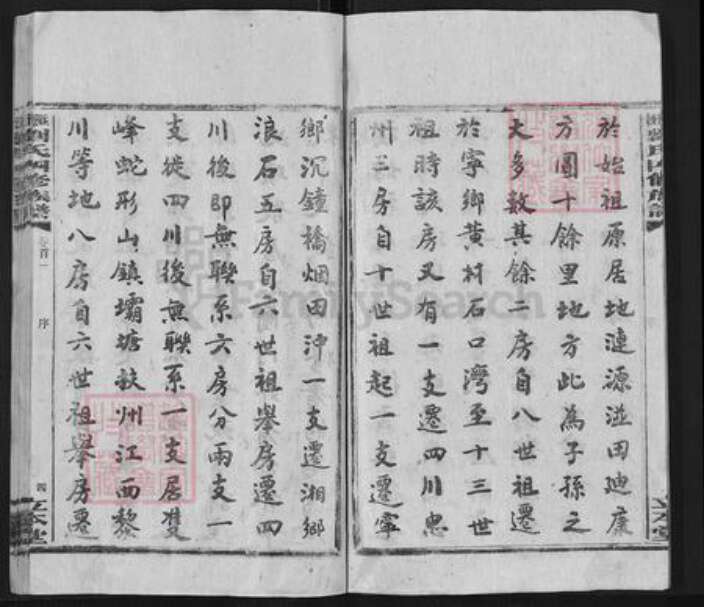 於始祖原居地漣源溢田迪康
方圓十餘里地方此為子孫之
大多数其餘二房自八世祖遷
於寧鄉黄村石口灣至十三世
祖時該房又有一支遷四川忠
州三房自十世祖起一支遷寧
鄉沉鐘橋烟田沖一支遷湘鄉
浪石五房自六世祖舉房遷四
川後即無聯系六房分兩支一
支徙四川後無聯系一支居雙
峰蛇形山鎮壩塘扶州江西黎
川等地八房自六世祖舉房遷
劉氏四修族譜
卷首一
序
四
立本堂
FamilySearch